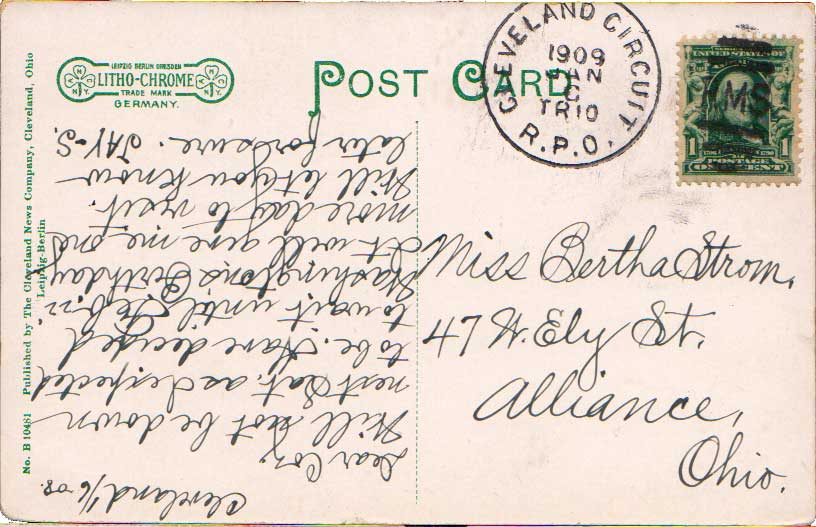 LEIPZIG BERLIN DRESDEN
LITHO-CHROME
TRADE MARK
GERMANY.
N.Y.
N.Y.
POST CARD
CLEVELAND CIRCUIT
1909
JAN
6
TR10
R.P.O.
RMS
UNITED STATES OF
1
1
POSTAGE
ONE CENT
Miss Bertha Strom,
47 W. Ely St.
Alliance,
Ohio.
Cleveland 1/6-08.
Dear Coz,
Will not be down
next Sat. as I expected
to be. Have decided
to wait until Feb-22
Washingtons Birthday
It will give me one
more day to visit.
Will let you know
later for sure. JAY-S.
No. B 10481 Published by The Cleveland News Company, Cleveland, Ohio
Leipzig-Berlin